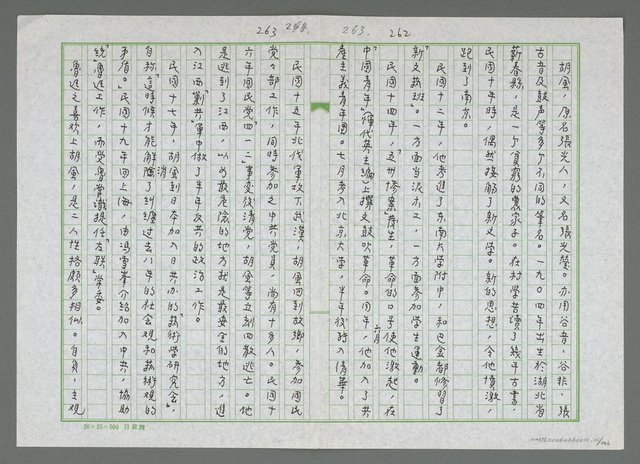 263 268. 263. 262
胡風，原名張光人，又名張光瑩。亦用谷音、谷非、張
古音及鼓聲等多个不同的筆名。一九〇四年出生於湖北省
蘄春縣，是一个貧窮的農家子。在村學苦讀了幾年古書，
民國十年時，偶然接觸了新文學。新的思想，令他憤激，
跑到了南京。
民國十二年，他考進了東南大學附中，和巴金都修習了
新文藝班。一方面當泥水工，一方面參加學生運動。
民國十四年，「五卅慘案」發生，革命的口号使他激起，在
「中國青年」（惲代英主編）上撰文鼓吹革命。同年六月，他加入了共
產主義青年團。七月考入北京大學，半年後轉入清華。
民國十五年北伐軍攻下武漢，胡風回到故鄉，參加國民
党々部工作，同時參加之中共党員，尚有十多人。民國十
六年國民党「四一二」事变後清党，胡風等立刻四散逃亡。他
是逃到了江西，以为最危險的地方就是最安全的地方，進
入江西「剿共」軍中做了半年反共的政治工作。
民國十七年，胡風到日本加入日共办的「藝術學研究会」，
自称「這時候才能解消了糾纏过去八年的社会观和藝術观的
矛盾」。民國十九年回上海，由馮雪峯介紹加入中共，協助
統「魯迅」工作，而受魯賞識提任「左联」常委。
魯迅之喜欢上胡風，是二人性格頗多相似。自負，主观
20×25=500 日昇牌